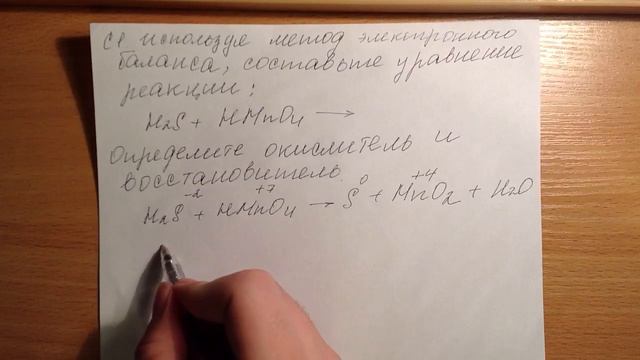 С1 используя метод электронного
баланса, составьте уравнение
реакции:
H2S + HMnO4 →
Определите окислитель и
восстановитель.
H2S⁻² + HMn⁺⁷O4 → S⁰ + Mn⁺⁴O2 + H2O